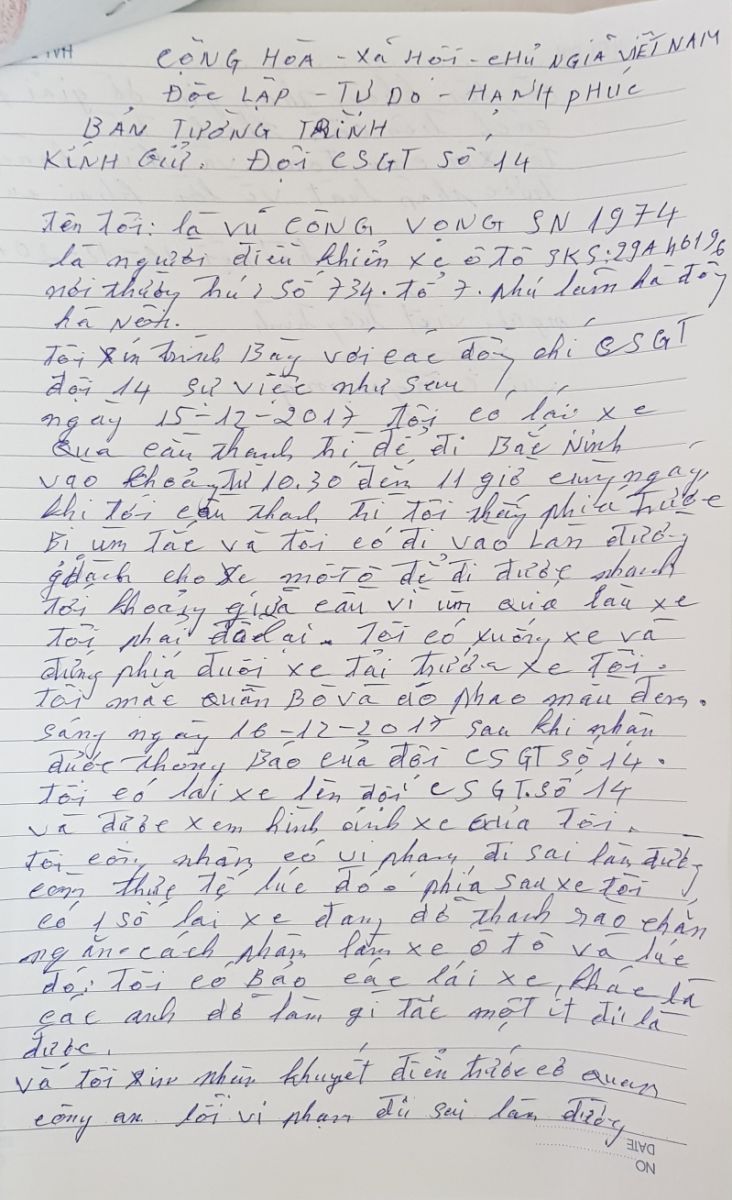 CỘNG HÒA - XÃ HỘI - CHỦ NGHĨA VIỆT NAM
ĐỘC LẬP - TỰ DO - HẠNH PHÚC
BẢN TƯỜNG TRÌNH
KÍNH GỬI. ĐỘI CSGT SỐ 14
Tên tôi: là VŨ CÔNG VỌNG SN 1974
là người điều khiển xe ô tô BKS: 29A 46196
nơi thường trú: Số 734. tổ 7. phú lãm hà đông
hà Nội.
Tôi xin trình Bày với các đồng chí CSGT
đội 14 sự việc như sau
ngày 15-12-2017 tôi có lái xe
Qua cầu thanh trì để đi Bắc Ninh
vào khoảng từ 10.30 đến 11 giờ cùng ngày
khi tới cầu thanh trì tôi thấy phía trước
Bị ùn tắc và tôi có đi vào Làn đường
dành cho xe mô tô để đi được nhanh
tới khoảng giữa cầu vì ùn quá lâu xe
tôi phải dừng lại. Tôi có xuống xe và
đứng phía đuôi xe tải trước xe tôi.
tôi mặc quần Bò và áo phao màu đen.
Sáng ngày 16-12-2017 sau khi nhận
được thông Báo của đội CSGT số 14.
tôi có lái xe lên đội CSGT số 14
và được xem hình ảnh xe của tôi.
tôi công nhận có vi phạm đi sai làn đường
còn thực tế lúc đó ở phía sau xe tôi
có 1 số lái xe đang dỡ thanh rào chắn
ngăn cách phần làn xe ô tô và lúc
đó: Tôi có Bảo các lái xe khác là
các anh dỡ làm gì tắc một ít đi là
được.
và tôi xin nhận khuyết điểm trước cơ quan
công an lỗi vi phạm đi sai làn đường
NO
DATE